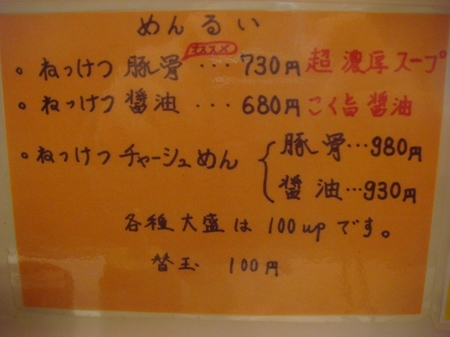 めんるい
オススメ
。ねっけつ 豚骨 ・・・ 730円 超濃厚スープ
。ねっけつ 醤油 ・・・ 680円 こく旨醤油
。ねっけつ チャーシュめん { 豚骨・・・980円
醤油・・・930円
各種大盛は 100upです。
替玉 100円